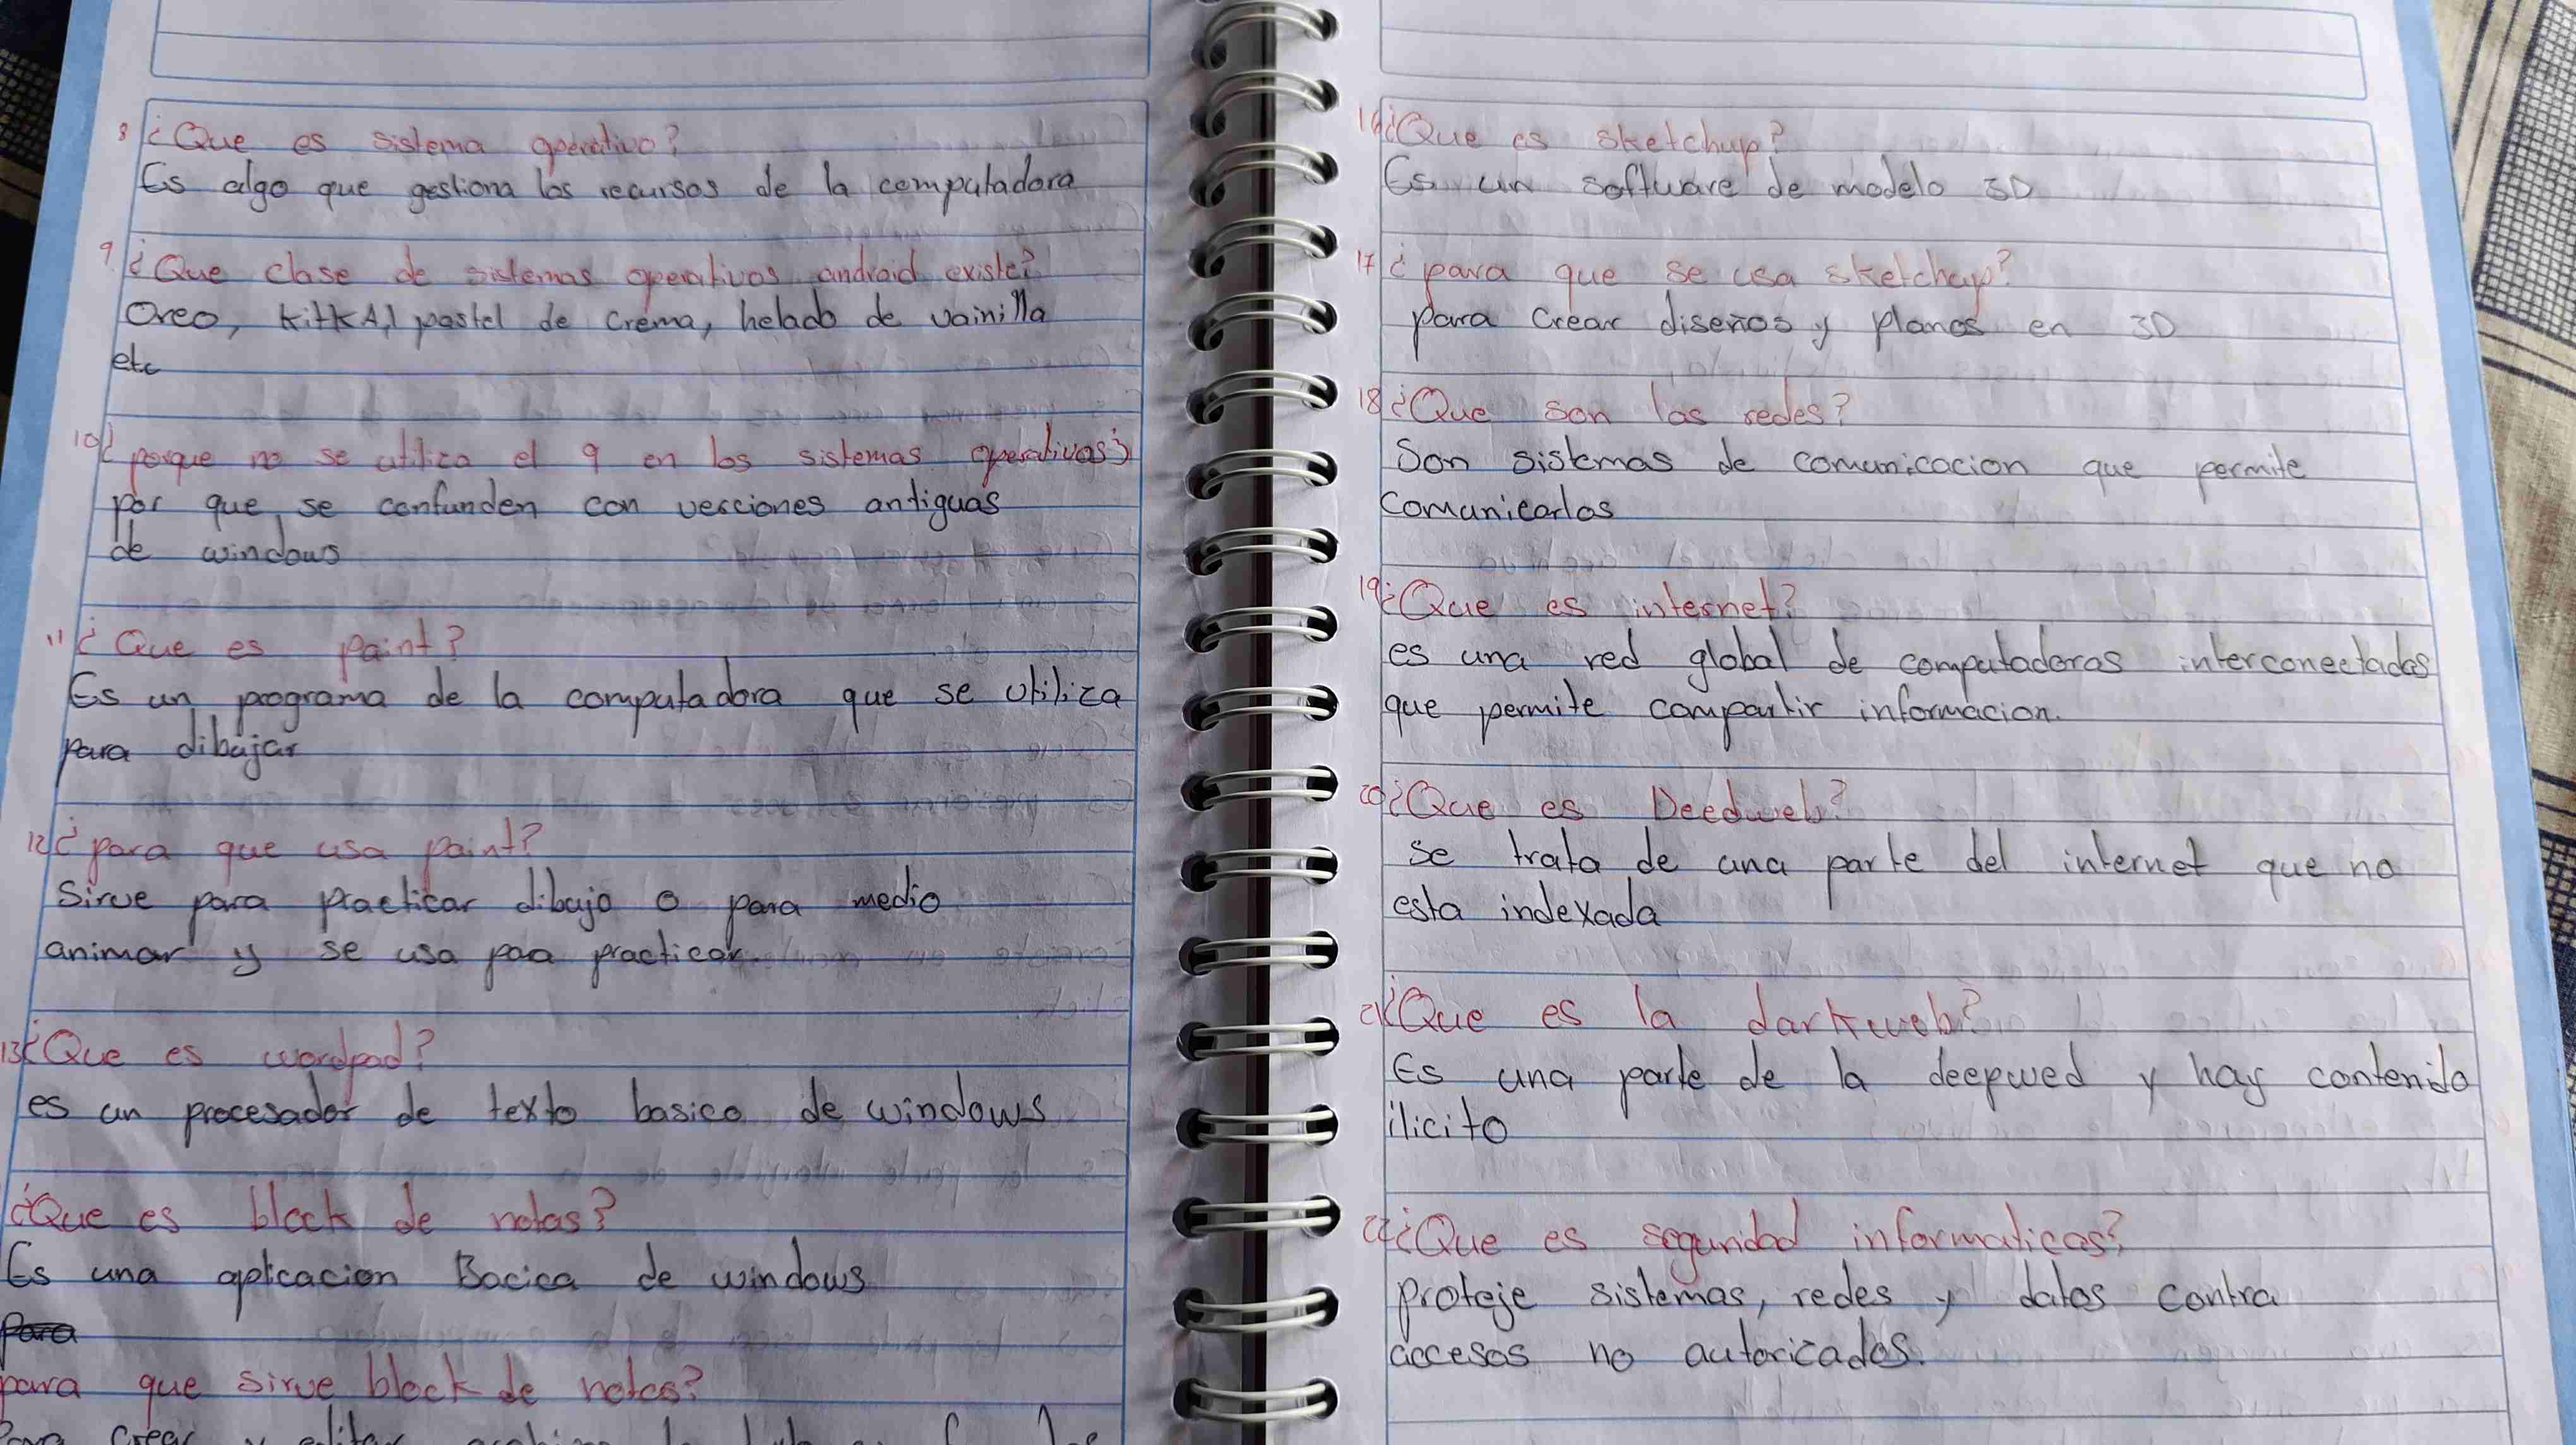 8 ¿Que es sistema operativo?
Es algo que gestiona los recursos de la computadora
9. ¿Que clase de sistemas operativos android existe?
Oreo, KitKAT pastel de crema, helado de vainilla
etc
10 ¿porque no se utiliza el 9 en los sistemas operativos?
por que se confunden con verciones antiguas
de windows
11 ¿Que es paint?
Es un programa de la computadora que se utiliza
para dibujar
12 ¿para que usa paint?
Sirve para practicar dibujo o para medio
animar y se usa paa practicar.
13 ¿Que es wordpad?
es un procesador de texto basico de windows
¿Que es block de notas?
Es una aplicacion Bacica de windows
Para
para que sirve block de notas?
Para crear y editar
16 ¿Que es sketchup?
Es un software de modelo 3D
17 ¿para que se usa sketchup?
para crear diseños y planos en 3D
18 ¿Que son las redes?
Son sistemas de comunicacion que permite
comunicarlos
19 ¿Que es internet?
es una red global de computadoras interconectadas
que permite compartir informacion.
20 ¿Que es Deedweb?
se trata de una parte del internet que no
esta indexada
21 ¿Que es la darkweb?
Es una parte de la deepwed y hay contenido
ilicito
22 ¿Que es seguridad informaticas?
proteje sistemas, redes y datos contra
accesos no autoricados.